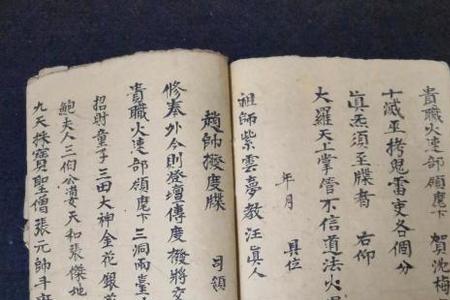 貴職火速部領麾下 賀沈梅
十滅巫拷鬼雷吏各個分
真炁須至牒者 右仰
大羅天上掌管不信道法火
年月 具位
祖師紫雲夢教汪真人
趙帥撥度牒 司額
修奏外今則登壇傳度撥將交
貴職火速部領麾下三洞兩臺
招財童子三田大神金花銀
鮑夫人三伯公婆天和張傑地
九天採寶聖僧張元帥手